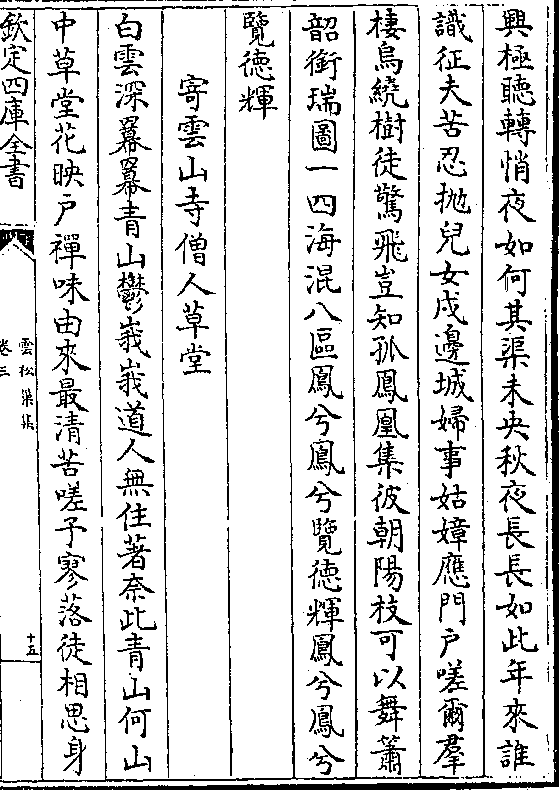 興極聽轉悄夜如何其渠未央秋夜長長如此年來誰
識征夫苦忍拋兒女戍邊城婦事姑嫜應門戶嗟爾羣
棲烏繞樹徒驚飛豈知孤鳳凰集彼朝陽枝可以舞簫
韶銜瑞圖一四海混八區鳳兮鳳兮覽德輝鳳兮鳳兮
覽德輝
寄雲山寺僧人草堂
白雲深羃羃青山鬱峩峩道人無住著奈此青山何山
中草堂花映戶禪味由來最清苦嗟予寥落徒相思身
欽定四庫全書
雲松巢集
卷三
十五